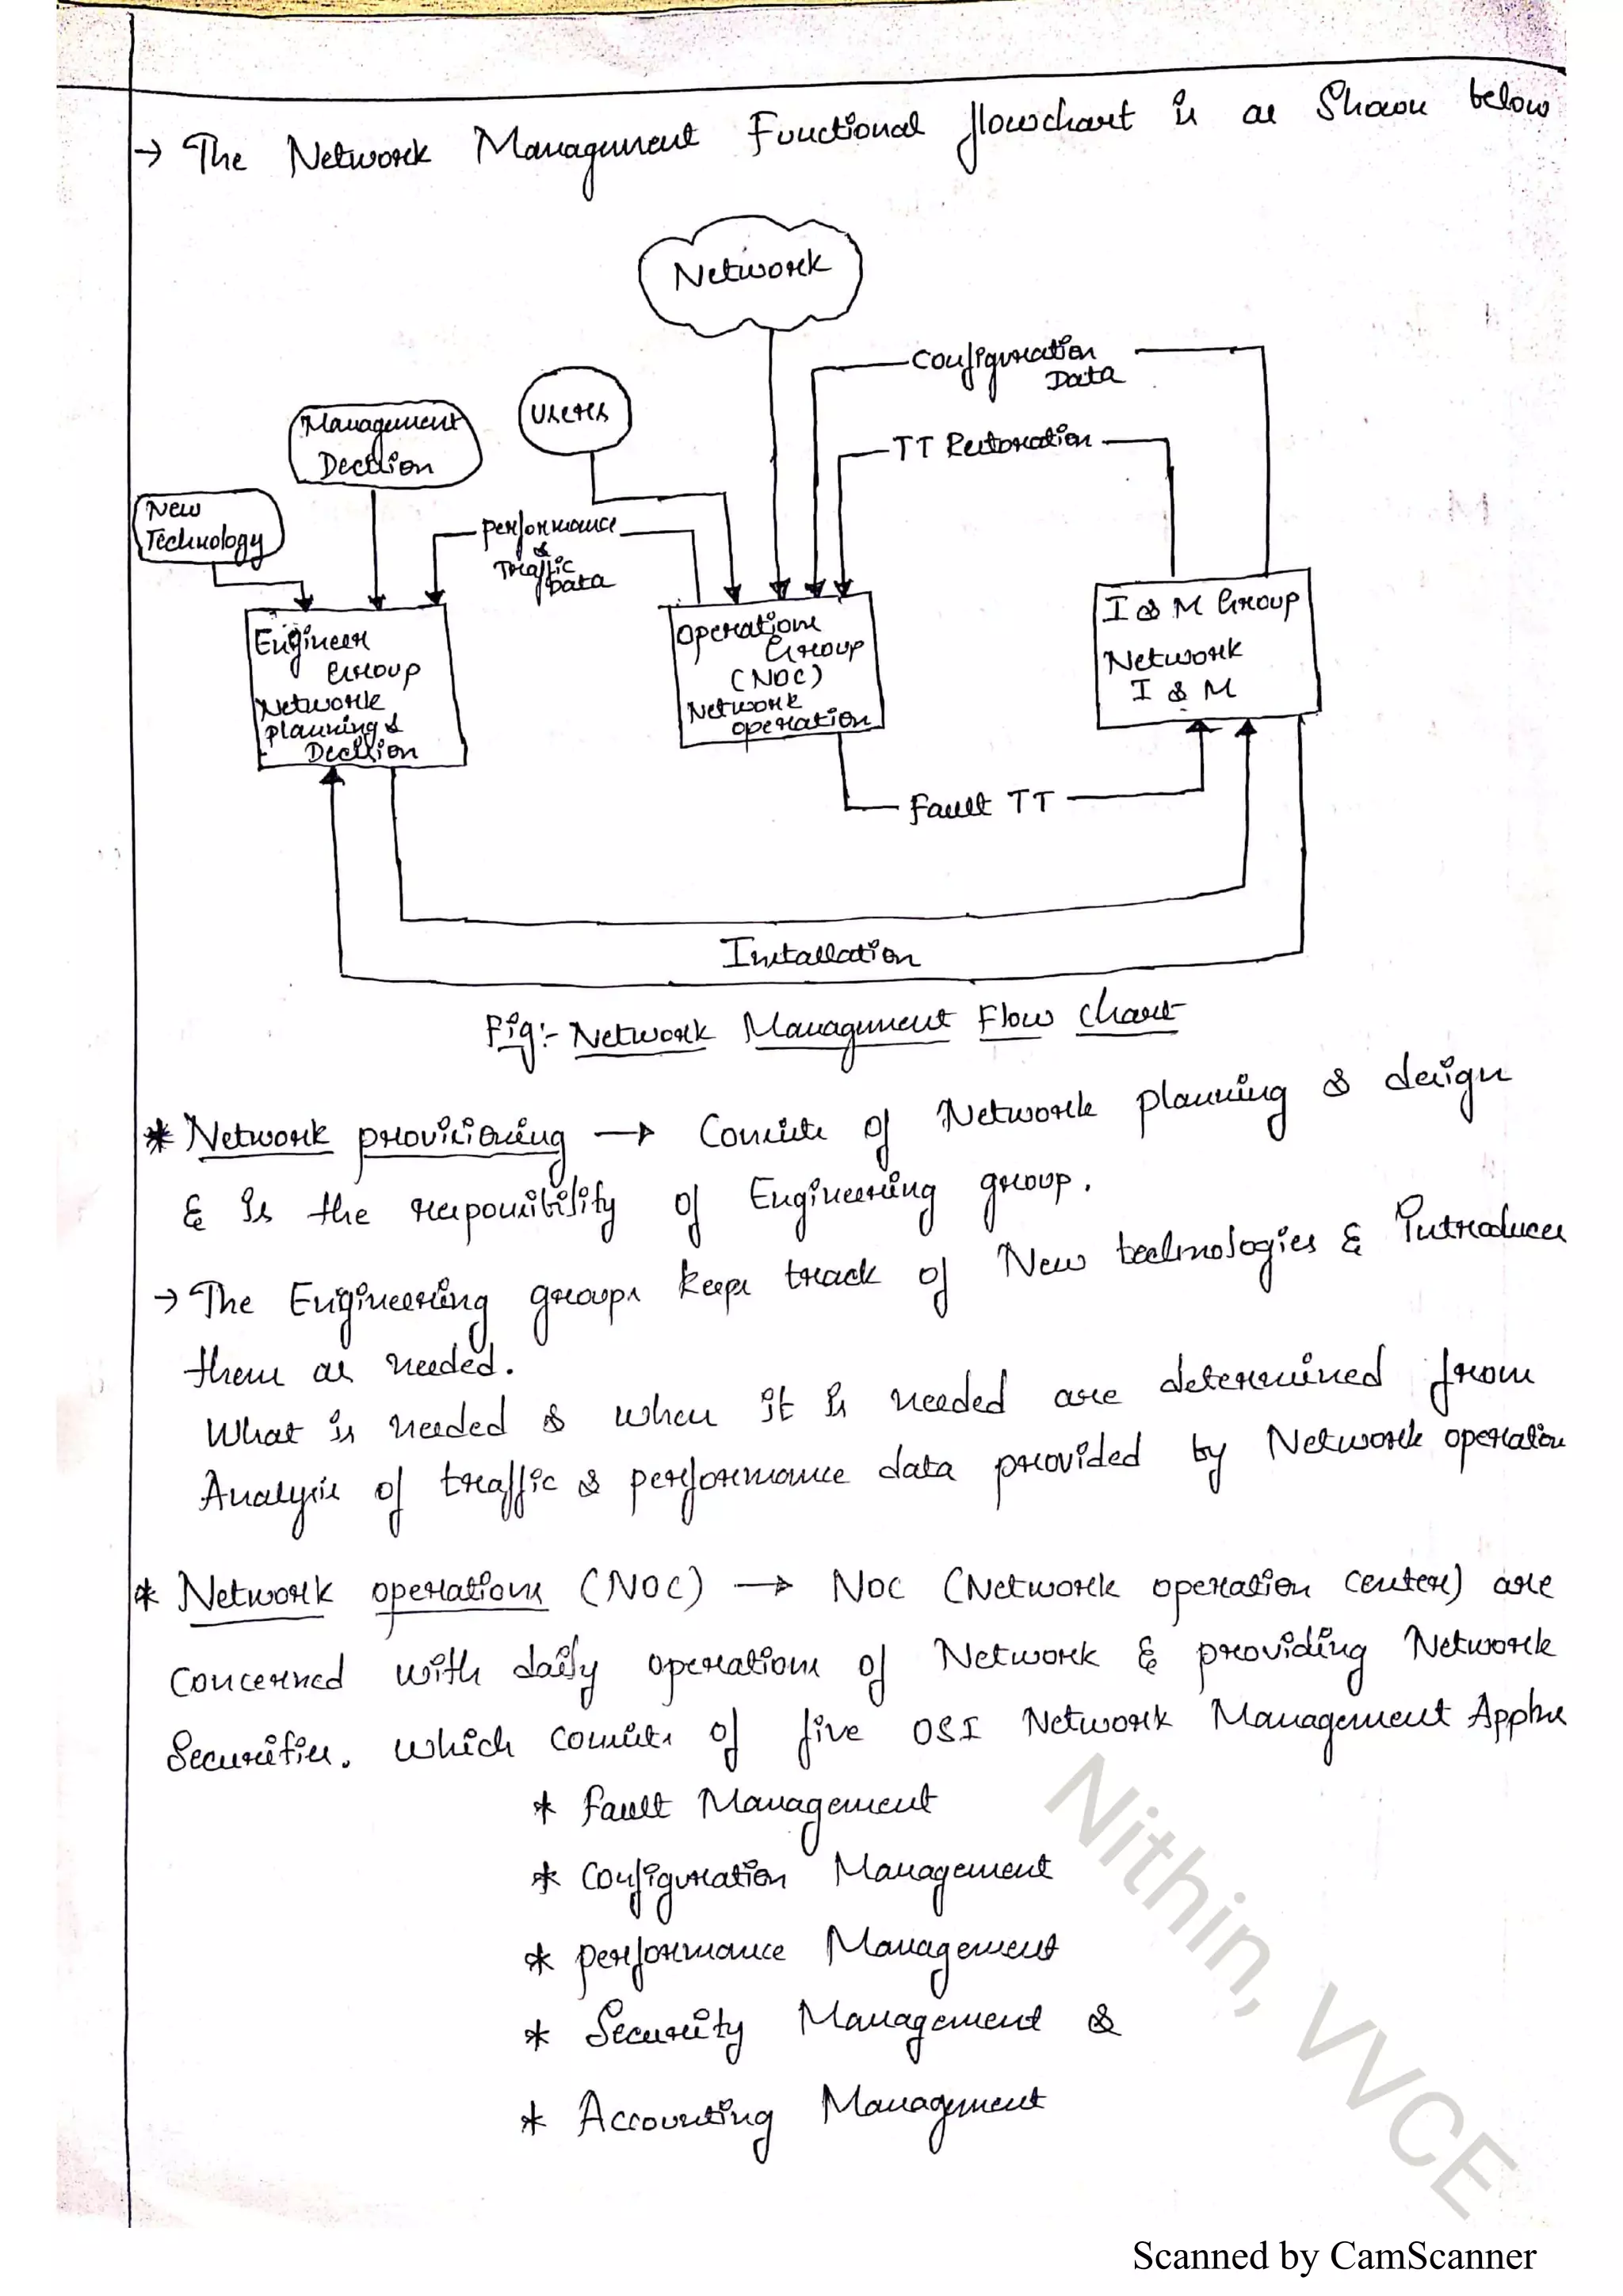 → The Network Management Functional flowchart is as Shown below
Network
Configuration
Data
Users
Management
Decision
TT Restoration
New
Technology
performance
&
Traffic
Data
Engineer
Group
Network
planning &
Decision
Operations
Group
(NOC)
Network
operation
I & M Group
Network
I & M
Fault TT
Installation
Fig:- Network Management Flow chart
* Network provisioning → Consists of Network planning & design
& Is the responsibility of Engineering group.
→ The Engineering groups keeps track of New technologies & Introduces
them as needed.
What is needed & when it is needed are determined from
Analysis of traffic & performance data provided by Network operation
* Network operations (NOC) → NOC (Network operation center) are
Concerned with daily operations of Network & providing Network
Securities. which consists of five OSI Network Management
* Fault Management
* Configuration Management
* performance Management
* Security Management &
* Accounting Management
Nithin, VVCE
Scanned by CamScanner